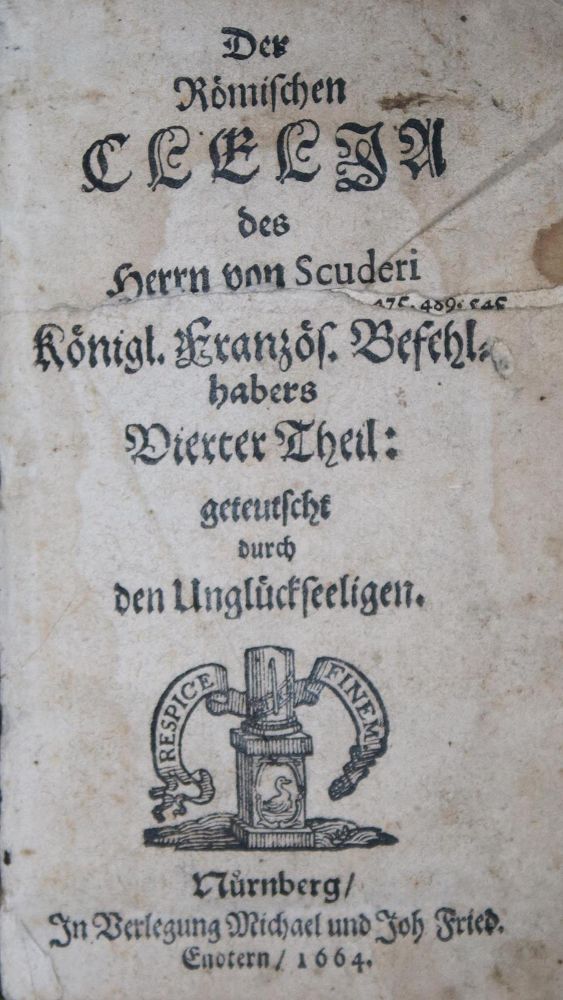 Der
Römiſchen
CLELJA
des
Herrn von Scuderi
475. 489. 545
Königl. Franzöſ. Befehl⸗
habers
Vierter Theil:
geteutſcht
durch
den Unglückſeeligen.
RESPICE FINEM
Nürnberg/
In Verlegung Michael und Joh Fried.
Endtern/ 1664.